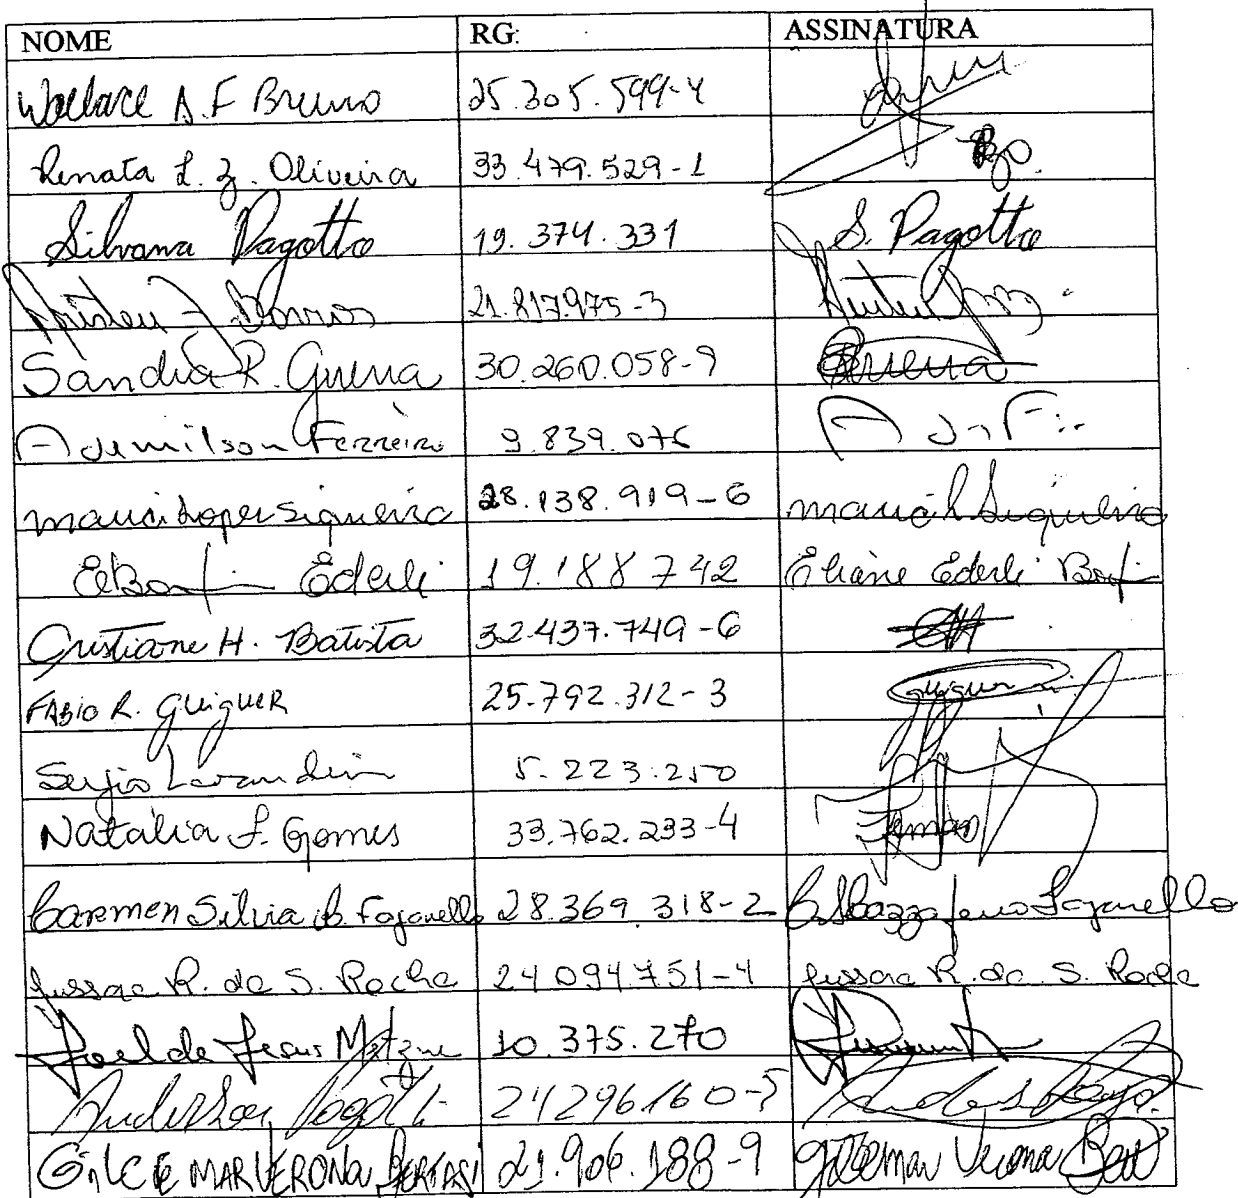 NOME RG: ASSINATURA
Wallace A. F Bruno 25.305.599-4
Renata L. Z. Oliveira 33.479.529-1
Silvana Pagotto 19.374.331 S. Pagotto
21.817.975-3
Sandra R. Guerra 30.260.058-9 Guerra
Ademilson Ferreira 9.839.076
maria Lopes siqueira 28.138.919-6 maria L Siqueira
Ederli 19.188742 Eliane Ederli
Cristiane H. Batista 32.437.749-6
FABIO R. GUIGUER 25.792.312-3 Guiguer
Sergio Lavandeira 5.223.250
Natalia F. Gomes 33.762.233-4
Carmen Silvia B. Fajanello 28.369.318-2 Fajanello
Jussara R. da S. Rocha 24094751-4 Jussara R. da S. Rocha
Joel de Jesus 10.375.270
Anderson Pagotti 24296160-5
GILCEMAR VERONA BERTASI 21.906.188-9 Gilcemar Verona